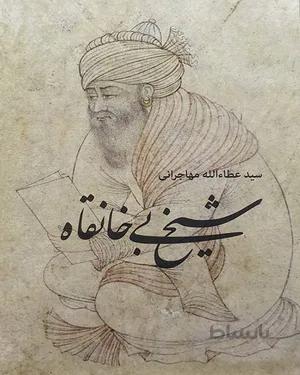 سید عطاءالله مهاجرانی
شیخ بی خانقاه
باساط